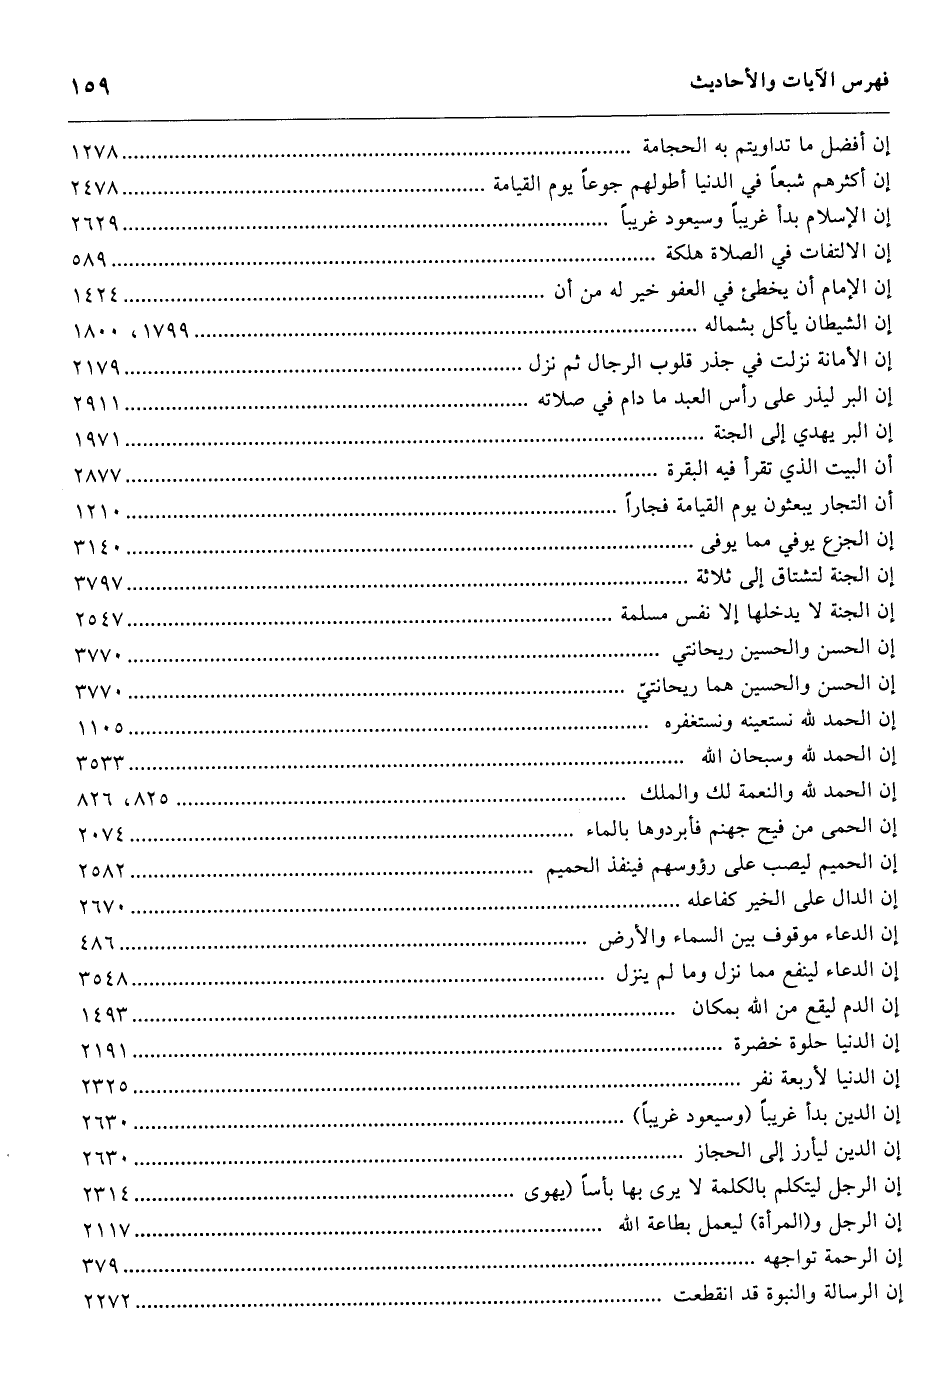 فهرس الآيات والأحاديث ١٥٩
إن أفضل ما تداويتم به الحجامة ........ ١٢٧٨
إن أكثرهم شبعاً في الدنيا أطولهم جوعاً يوم القيامة ........ ٢٤٧٨
إن الإسلام بدأ غريباً وسيعود غريباً ........ ٢٦٢٩
إن الالتفات في الصلاة هلكة ........ ٥٨٩
إن الإمام أن يخطئ في العفو خير له من أن ........ ١٤٢٤
إن الشيطان يأكل بشماله ........ ١٧٩٩، ١٨٠٠
إن الأمانة نزلت في جذر قلوب الرجال ثم نزل ........ ٢١٧٩
إن البر ليذر على رأس العبد ما دام في صلاته ........ ٢٩١١
إن البر يهدي إلى الجنة ........ ١٩٧١
أن البيت الذي تقرأ فيه البقرة ........ ٢٨٧٧
أن التجار يبعثون يوم القيامة فجاراً ........ ١٢١٠
إن الجزع يوفي مما يوفى ........ ٣١٤٠
إن الجنة لتشتاق إلى ثلاثة ........ ٣٧٩٧
إن الجنة لا يدخلها إلا نفس مسلمة ........ ٢٥٤٧
إن الحسن والحسين ريحانتي ........ ٣٧٧٠
إن الحسن والحسين هما ريحانتيّ ........ ٣٧٧٠
إن الحمد لله نستعينه ونستغفره ........ ١١٠٥
إن الحمد لله وسبحان الله ........ ٣٥٣٣
إن الحمد لله والنعمة لك والملك ........ ٨٢٥، ٨٢٦
إن الحمى من فيح جهنم فأبردوها بالماء ........ ٢٠٧٤
إن الحميم ليصب على رؤوسهم فينفذ الحميم ........ ٢٥٨٢
إن الدال على الخير كفاعله ........ ٢٦٧٠
إن الدعاء موقوف بين السماء والأرض ........ ٤٨٦
إن الدعاء لينفع مما نزل وما لم ينزل ........ ٣٥٤٨
إن الدم ليقع من الله بمكان ........ ١٤٩٣
إن الدنيا حلوة خضرة ........ ٢١٩١
إن الدنيا لأربعة نفر ........ ٢٣٢٥
إن الدين بدأ غريباً (وسيعود غريباً) ........ ٢٦٣٠
إن الدين ليأرز إلى الحجاز ........ ٢٦٣٠
إن الرجل ليتكلم بالكلمة لا يرى بها بأساً (يهوى ........ ٢٣١٤
إن الرجل و(المرأة) ليعمل بطاعة الله ........ ٢١١٧
إن الرحمة تواجهه ........ ٣٧٩
إن الرسالة والنبوة قد انقطعت ........ ٢٢٧٢